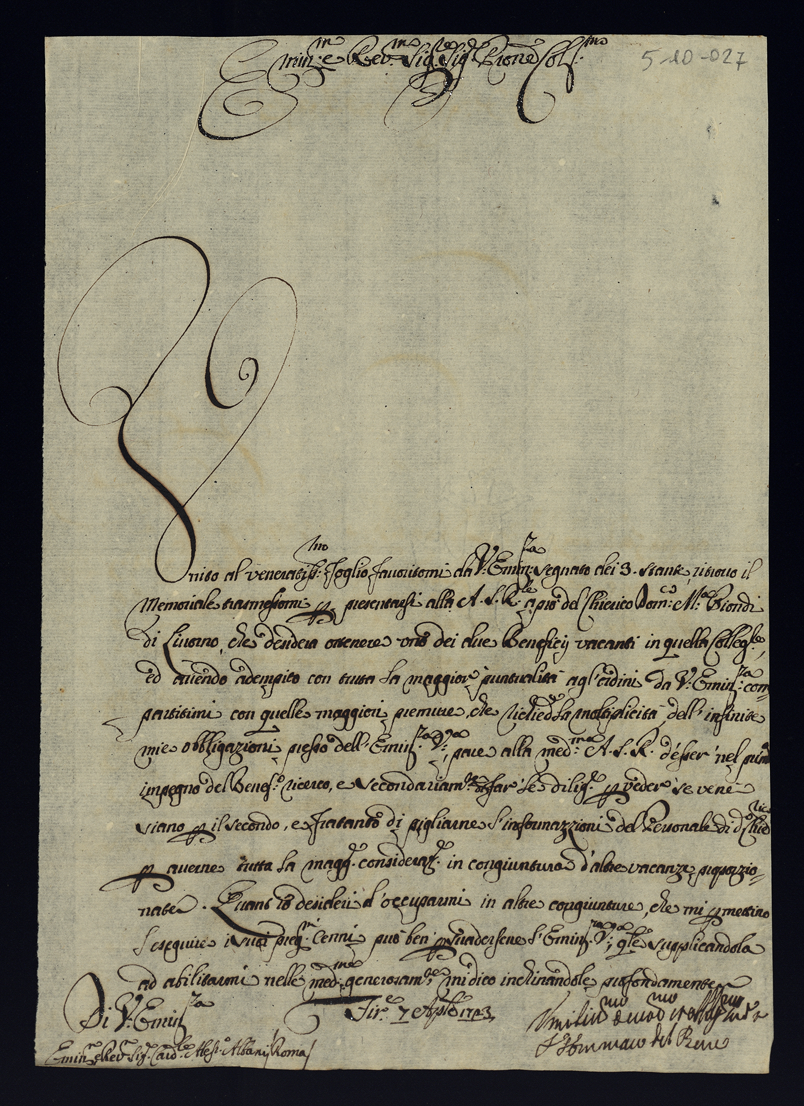 Emin.mo e Rev.mo Sig.r Sig.r Prone Col.mo
5-10-027
Unito al veneratiss.mo foglio favoritomi da V. Emin.za segnato dei 3. stante, ritrovo il
Memoriale trasmessomi p presentarsi alla A. S. R.le a prò del Chierico Dom.co M.a Biondi
di Livorno, che desidera ottenere uno dei due Beneficij vacanti in quella Colleg.ta,
ed avendo adempito con tutta la maggior puntualità agl'ordini da V. Emin.za com-
partitimi con quelle maggiori premure, che richiede la moltiplicità dell'infinite
mie obbligazioni presso dell'Emin.za V.ra, pare alla med.ma A. S. R. d'esser nel primo
impegno del Benef.o ricerco, e secondariam.te far se dilig.e p veder se vene
siano p il secondo, e frattanto di pigliarne l'informazzioni del Personale di d.o Chierico
p averne tutta la magg. consideraz.e in congiuntura d'altre vacanze proporzio-
nate. Quanto io desideri d'occuparmi in altre congiunture, che mi pmettino
l'eseguire i suoi preg.mi Cenni può ben psuadersene l'Emin.za V.ra, q.le supplicandola
ad abilitarmi nelle med.me generosam.te mi dico inchinandole profondamente
Di V. Emin.za
Fir.e 7 Ap.le 1723
Umiliss.mo Devo.mo et Obblig.mo Ser.re
F. Tommaso del Bene
Emin.mo e Rev.mo Sig.r Card.le Aless.o Albani Roma